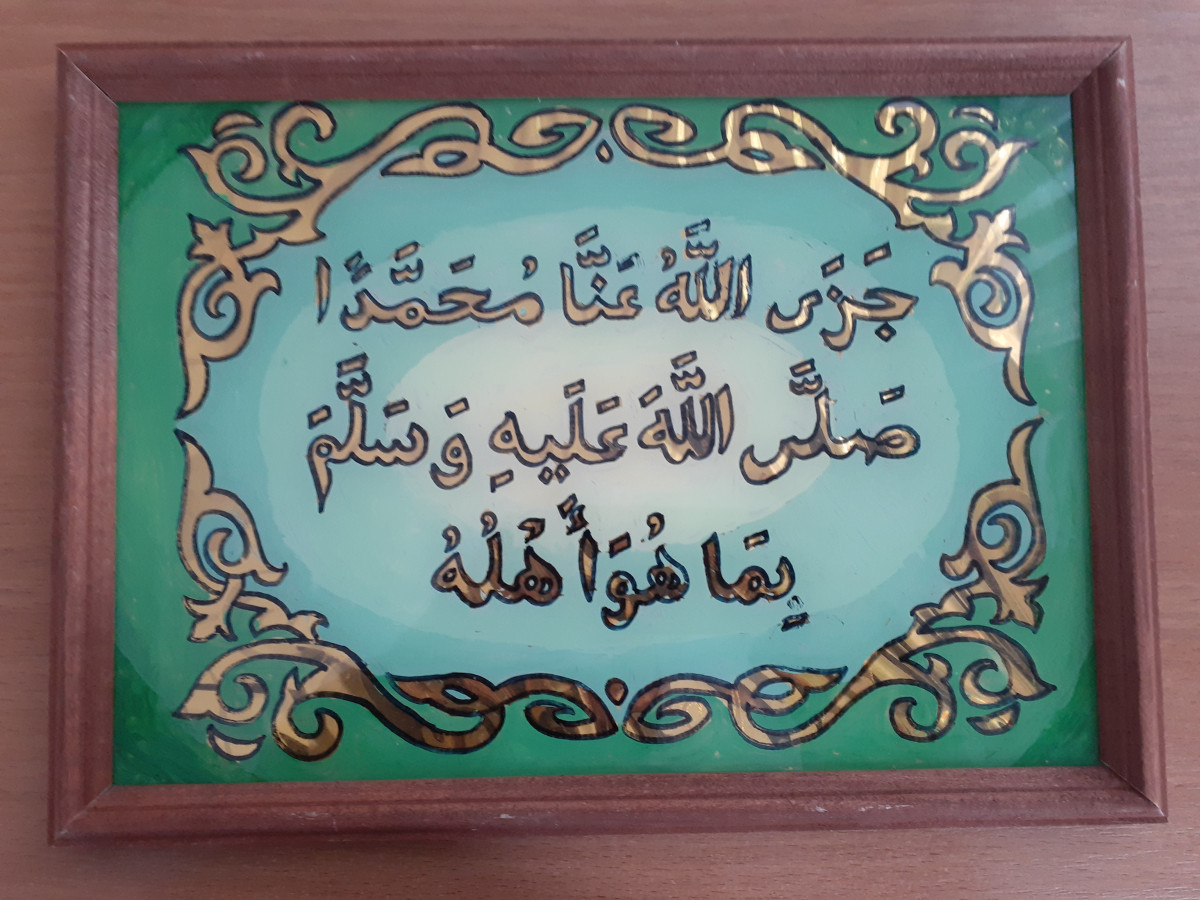 جَزَى اللَّهُ عَنَّا مُحَمَّدًا
صَلَّى اللَّهَ عَلَيهِ وَسَلَّمَ
بِمَا هُوَأَهْلُهُ